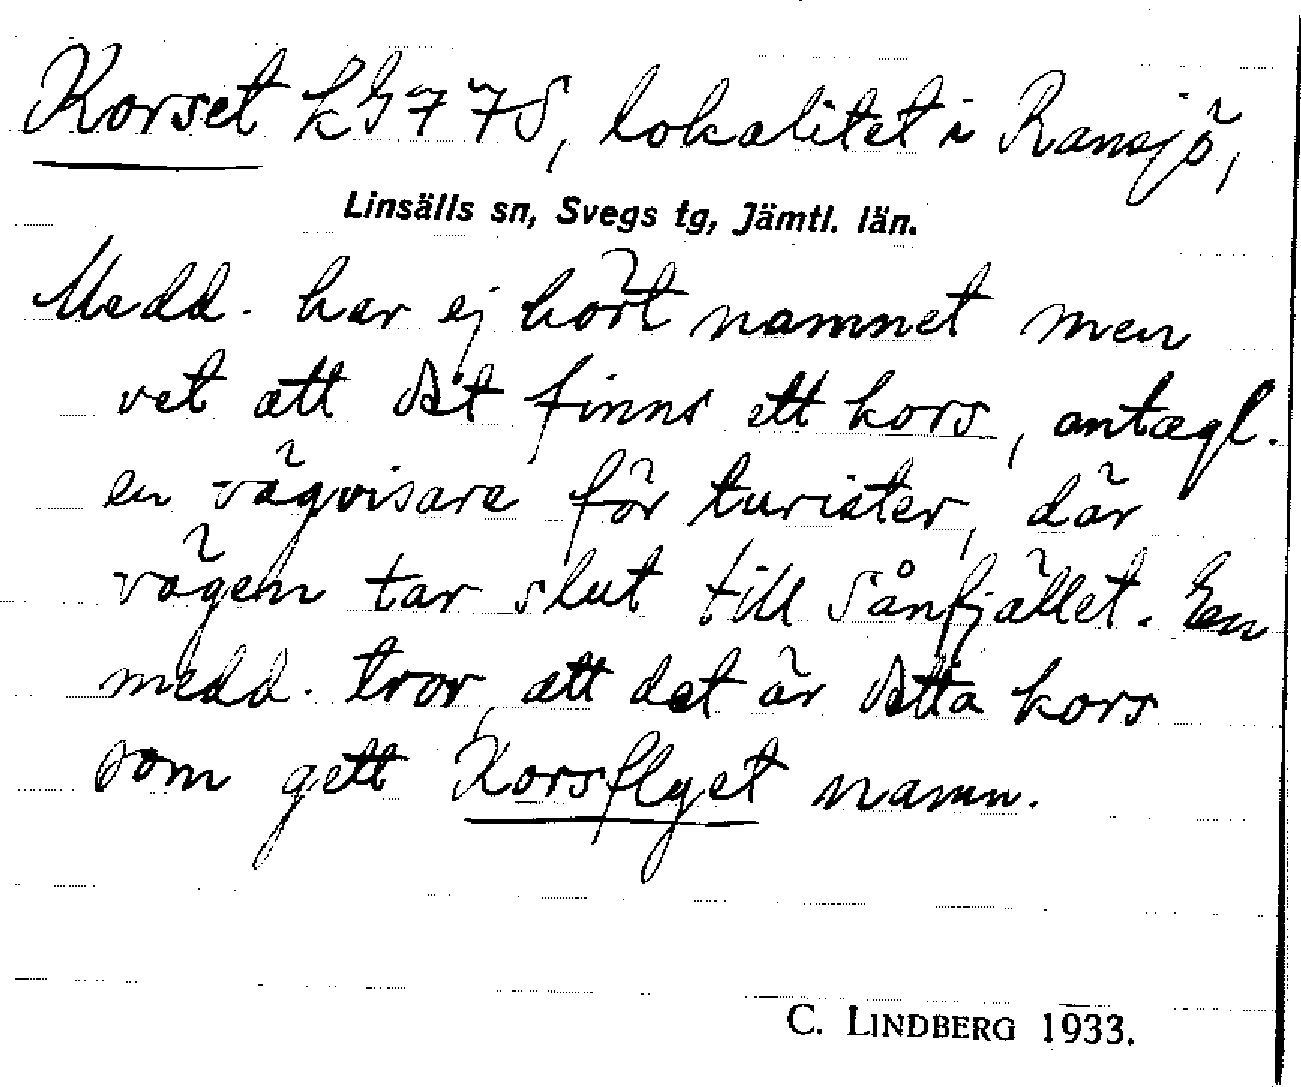 Korset kG778, lokalitet i Ransjö,
Linsälls sn, Svegs tg, Jämtl. län.
Medd. har ej hört namnet men
vet att det finns ett kors, antagl.
en vägvisare för turister, där
vägen tar slut till Sånfjället. En
medd. tror att det är detta kors
som gett Korsflyet namn.
C. LINDBERG 1933.